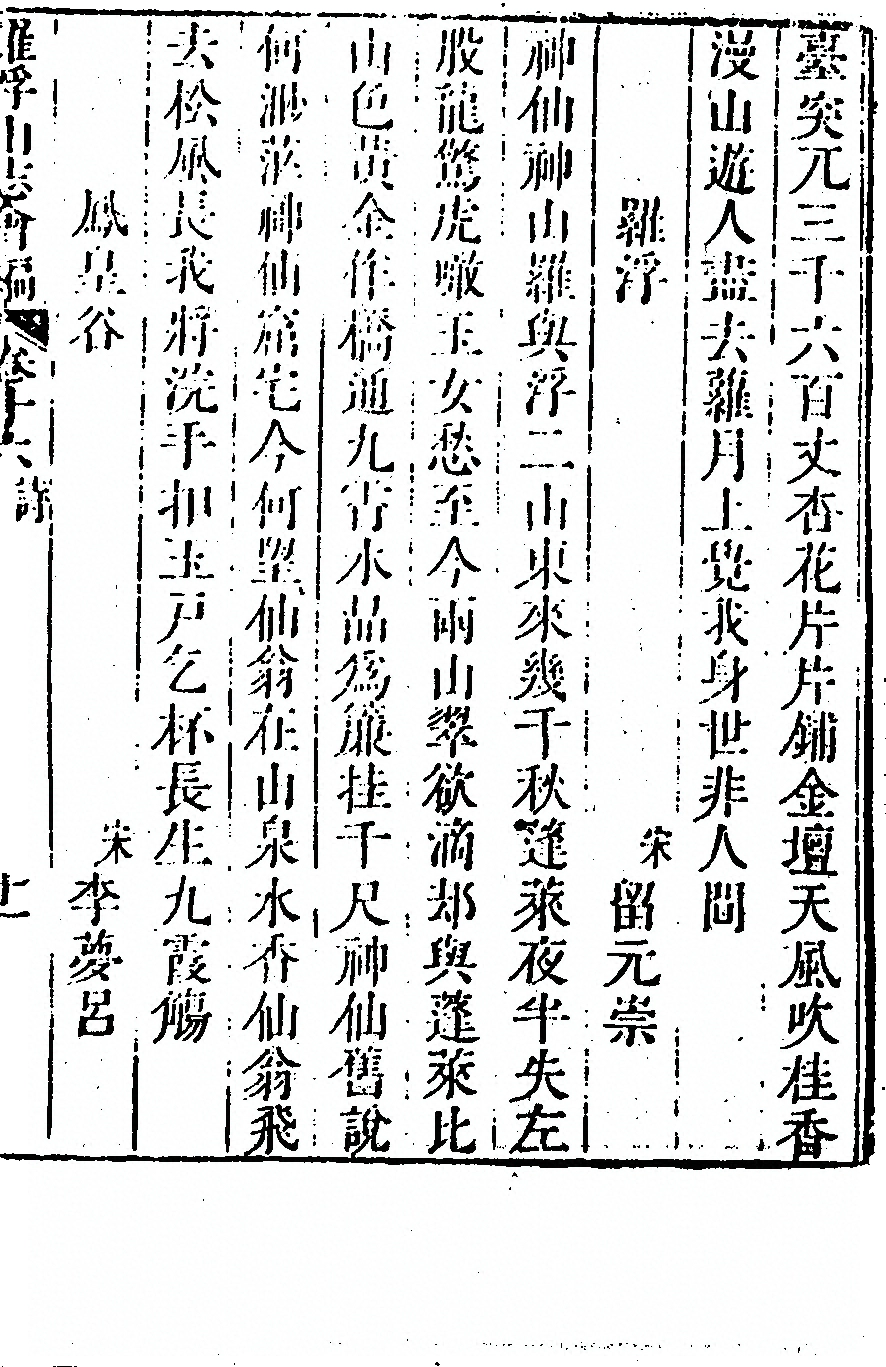 臺突兀三千六百丈杏花片片鋪金壇天風吹桂香
漫山遊人盡去蘿月上覺我身世非人間
羅浮
宋 留元崇
神仙神山羅與浮二山東來幾千秋蓬萊夜半失左
股龍驚虎噉玉女愁至今兩山翠欲滴却與蓬萊比
山色黃金作橋通九霄水晶爲簾挂千尺神仙舊說
何渺茫神仙窟宅今何望仙翁在山泉水香仙翁飛
去松風長我將洗手扣玉戸乞杯長生九霞觴
鳳皇谷
宋 李夢呂
羅浮山志會編 卷十六 詩
十一